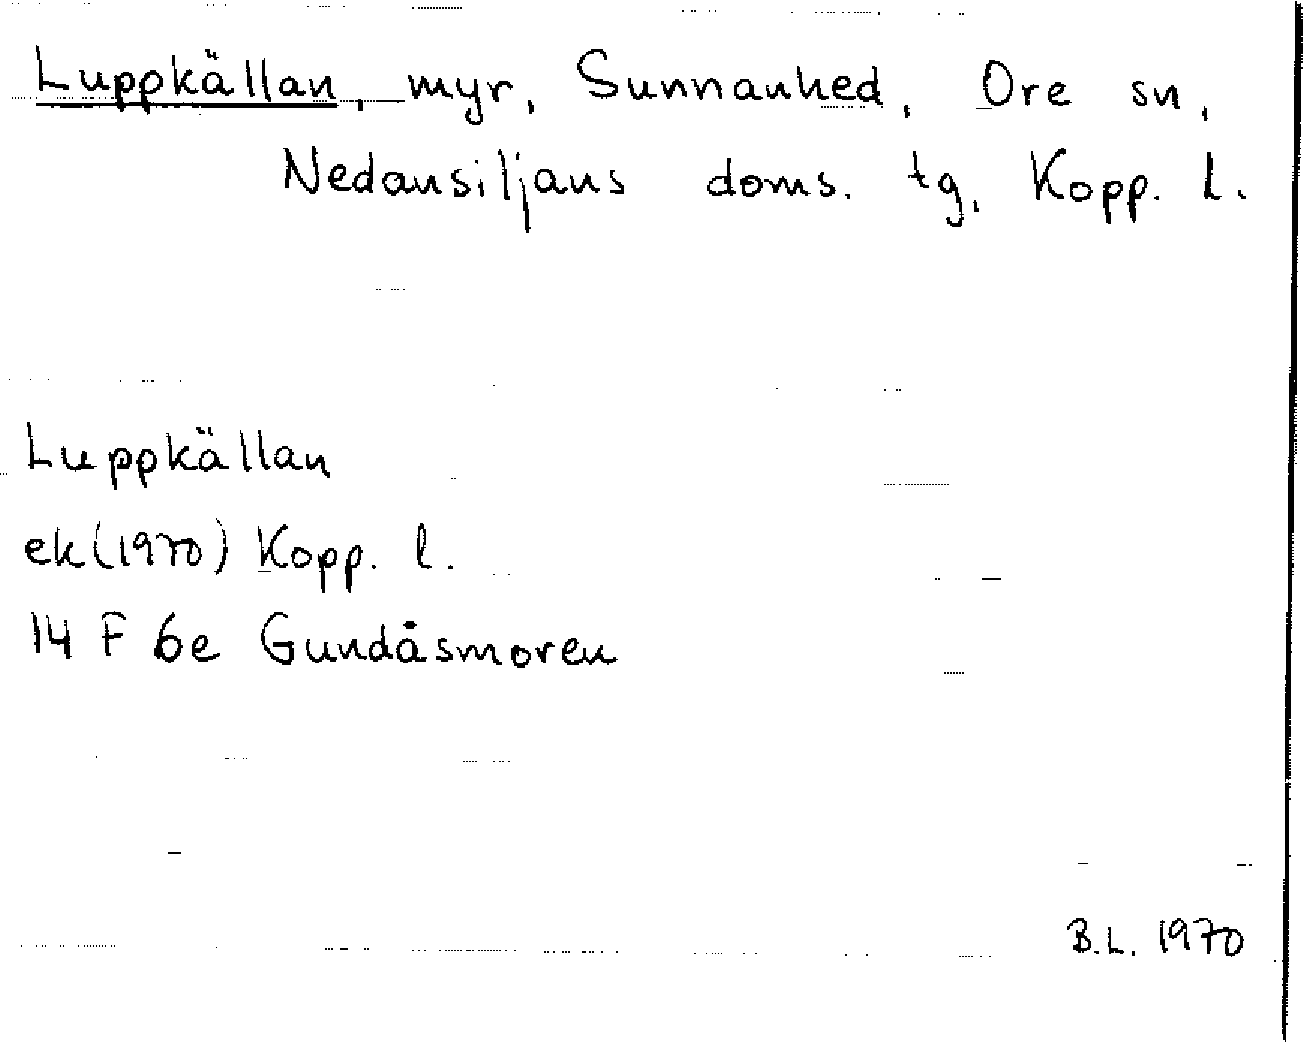 Luppkällan, myr, Sunnanhed, Ore sn,
Nedansiljans doms. tg, Kopp. l.
Luppkällan
ek (1970) Kopp. l.
14 F 6e Gundåsmoren
B.L. 1970